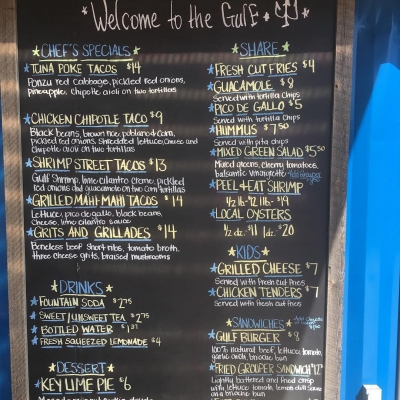 *Welcome to the Gulf*
*CHEF'S SPECIALS*
*TUNA POKE TACOS $14
Ponzu red cabbage, pickled red onions,
pineapple, chipotle aioli on two tortillas
*CHICKEN CHIPOTLE TACO $9
Black beans, brown rice, poblano & corn,
pickled red onions, Shredded lettuce, Cheese and
Chipotle aioli on two tortillas
*SHRIMP STREET TACOS $13
Gulf Shrimp, lime cilantro creme, pickled
red onions and guacamole on two corn tortillas
*GRILLED MAHI-MAHI TACOS $14
Lettuce, pico de gallo, black beans,
Cheese, lime cilantro sauce
*GRITS AND GRILLADES *$14
Boneless beef short ribs, tomato broth,
three cheese grits, braised mushrooms
*DRINKS*
*FOUNTAIN SODA $2.75
*SWEET/UNSWEET TEA $2.75
*BOTTLED WATER
*FRESH SQUEEZED LEMONADE $4
*DESSERT*
*KEY LIME PIE $6
*SHARE*
*FRESH CUT FRIES $4
*GUACAMOLE $8
Served with tortilla chips
*PICO DE GALLO $5
Served with tortilla Chips
*HUMMUS $7.50
Served with pita chips
*MIXED GREEN SALAD $5.50
Mixed greens, cherry tomatoes,
balsamic vinaigrette
*PEEL + EAT SHRIMP
1/2 lb. $12 1 lb. $19
*LOCAL OYSTERS
1/2 dz. $11 1 dz. $20
*KIDS*
*GRILLED CHEESE $7
Served with fresh cut fries
*CHICKEN TENDERS $7
Served with fresh cut fries
*SANDWICHES*
*GULF BURGER $8
100% natural beef, lettuce, tomato,
garlic aioli, brioche bun
*FRIED GROUPER SANDWICH
Lightly battered and fried crisp
with lettuce, tomato, lemon dill sauce
on a brioche bun